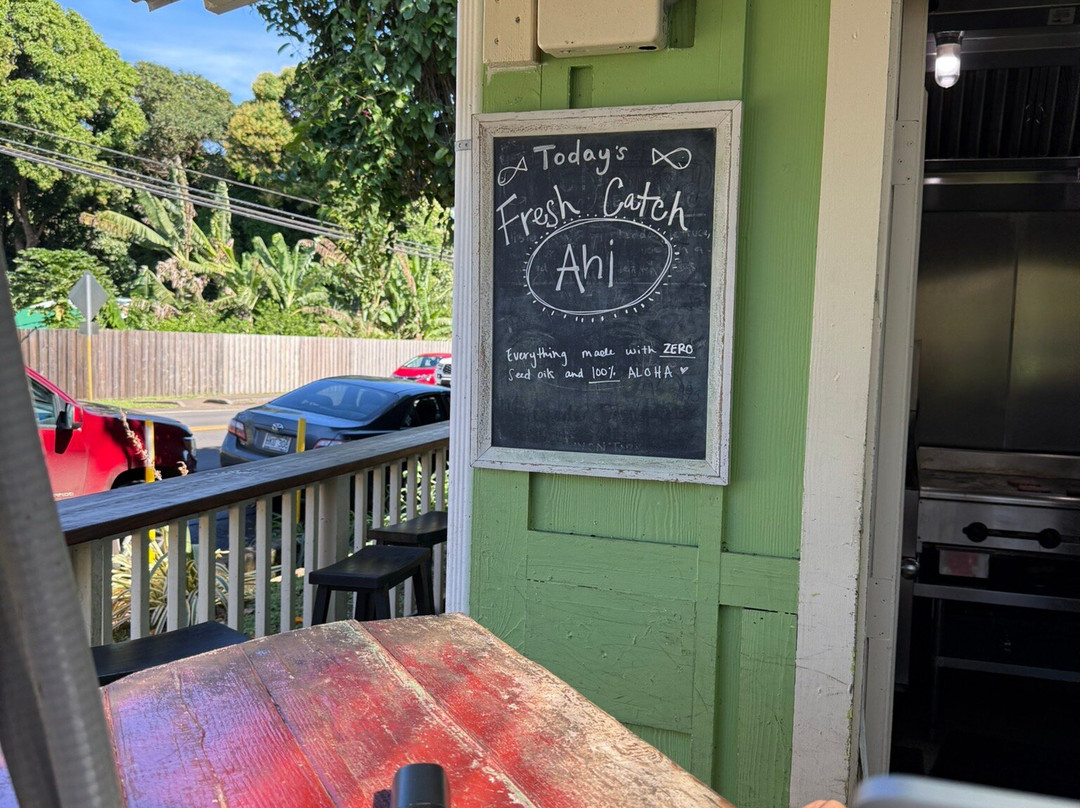 Today's
Fresh Catch
Ahi
Everything made with ZERO
Seed oils and 100% ALOHA ♥